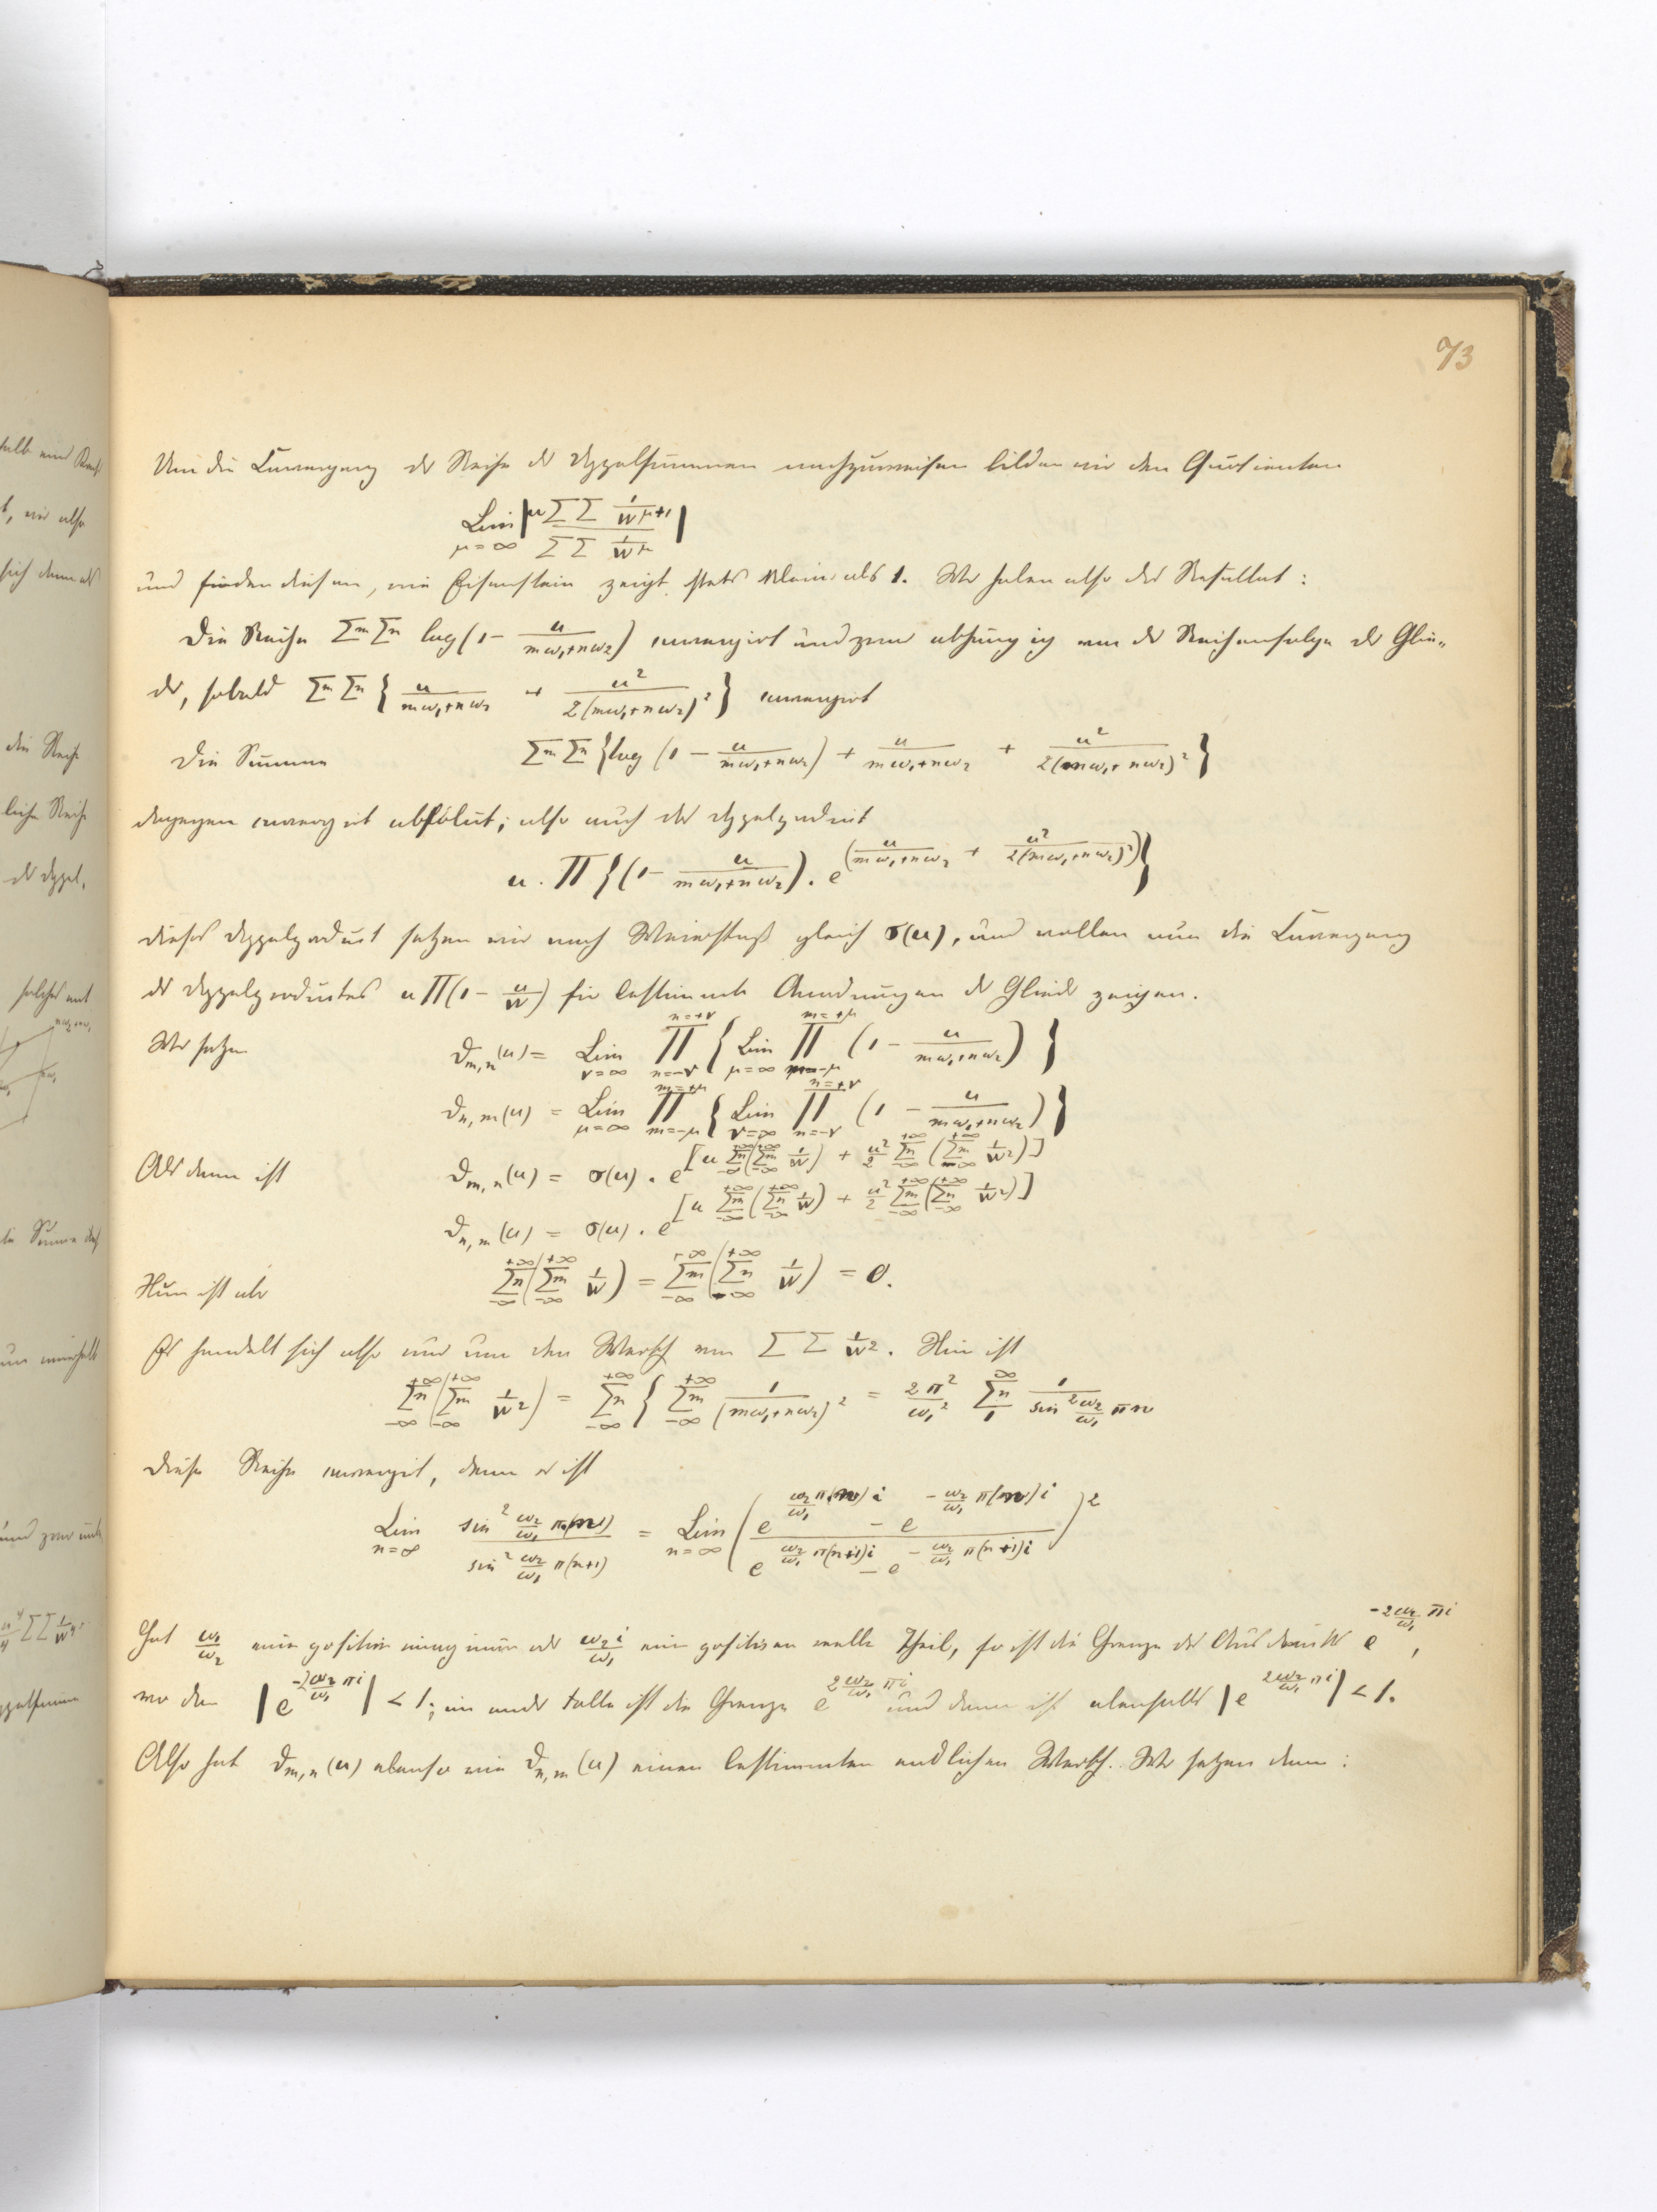 73
Um die Convergenz der Reihe der Doppelsummen nachzuweisen bilden wir den Quotienten
Lim_{μ=∞} | μ ΣΣ 1/w^{μ+1} / ΣΣ 1/w^μ |
und finden diesen, wie Eisenstein zeigt, stets kleiner als 1. Wir haben also das Resultat:
Die Reihe Σm Σn log(1 - u/(mω₁+nω₂)) convergirt und zwar abhängig von der Reihenfolge der Glie-
der, sobald Σm Σn { u/(mω₁+nω₂) + u²/2(mω₁+nω₂)² } convergirt
Die Summe Σm Σn {log (1 - u/(mω₁+nω₂)) + u/(mω₁+nω₂) + u²/2(mω₁+nω₂)² }
dagegen convergirt absolut; also auch das Doppelproduct
u . Π {(1 - u/(mω₁+nω₂)) . e^{(u/(mω₁+nω₂) + u²/2(mω₁+nω₂)²)}}
dieses Doppelproduct setzen wir nach Weierstraß gleich σ(u), und wollen nun die Convergenz
des Doppelproductes u Π(1 - u/w) für bestimmte Anordnungen der Glieder zeigen.
Wir setzen ϑ_{m,n}(u) = Lim_{ν=∞} Π_{n=-ν}^{n=+ν} { Lim_{μ=∞} Π_{m=-μ}^{m=+μ} (1 - u/(mω₁+nω₂)) }
ϑ_{n,m}(u) = Lim_{μ=∞} Π_{m=-μ}^{m=+μ} { Lim_{ν=∞} Π_{n=-ν}^{n=+ν} (1 - u/(mω₁+nω₂)) }
Alsdann ist ϑ_{m,n}(u) = σ(u) . e^{[u Σn_{-∞}^{+∞} (Σm_{-∞}^{+∞} 1/w) + u²/2 Σn_{-∞}^{+∞} (Σm_{-∞}^{+∞} 1/w²)]}
ϑ_{n,m}(u) = σ(u) . e^{[u Σm_{-∞}^{+∞} (Σn_{-∞}^{+∞} 1/w) + u²/2 Σm_{-∞}^{+∞} (Σn_{-∞}^{+∞} 1/w²)]}
Nun ist aber Σn_{-∞}^{+∞} (Σm_{-∞}^{+∞} 1/w) = Σm_{-∞}^{+∞} (Σn_{-∞}^{+∞} 1/w) = 0.
Es handelt sich also nur um den Werth von ΣΣ 1/w². Hier ist
Σn_{-∞}^{+∞} (Σm_{-∞}^{+∞} 1/w²) = Σn_{-∞}^{+∞} { Σm_{-∞}^{+∞} 1/(mω₁+nω₂)² = 2π²/ω₁² Σn_{1}^{∞} 1/sin² ω₂/ω₁ πn
Diese Reihe convergirt, denn es ist
Lim_{n=∞} sin² ω₂/ω₁ π(n) / sin² ω₂/ω₁ π(n+1) = Lim_{n=∞} ( (e^{ω₂/ω₁ π(n)i} - e^{-ω₂/ω₁ π(n)i}) / (e^{ω₂/ω₁ π(n+1)i} - e^{-ω₂/ω₁ π(n+1)i}) )²
Hat ω₁/ω₂ einen positiven oder ω₂i/ω₁ einen positiven reellen Theil, so ist die Grenze des Ausdrucks e^{-2ω₂/ω₁ πi},
wo dann |e^{-2ω₂/ω₁ πi}| < 1; im andern Falle ist die Grenze e^{2ω₂/ω₁ πi} und dann ist ebenfalls |e^{2ω₂/ω₁ πi}| < 1.
Also hat ϑ_{m,n}(u) ebenso wie ϑ_{n,m}(u) einen bestimmten endlichen Werth. Wir setzen dann: